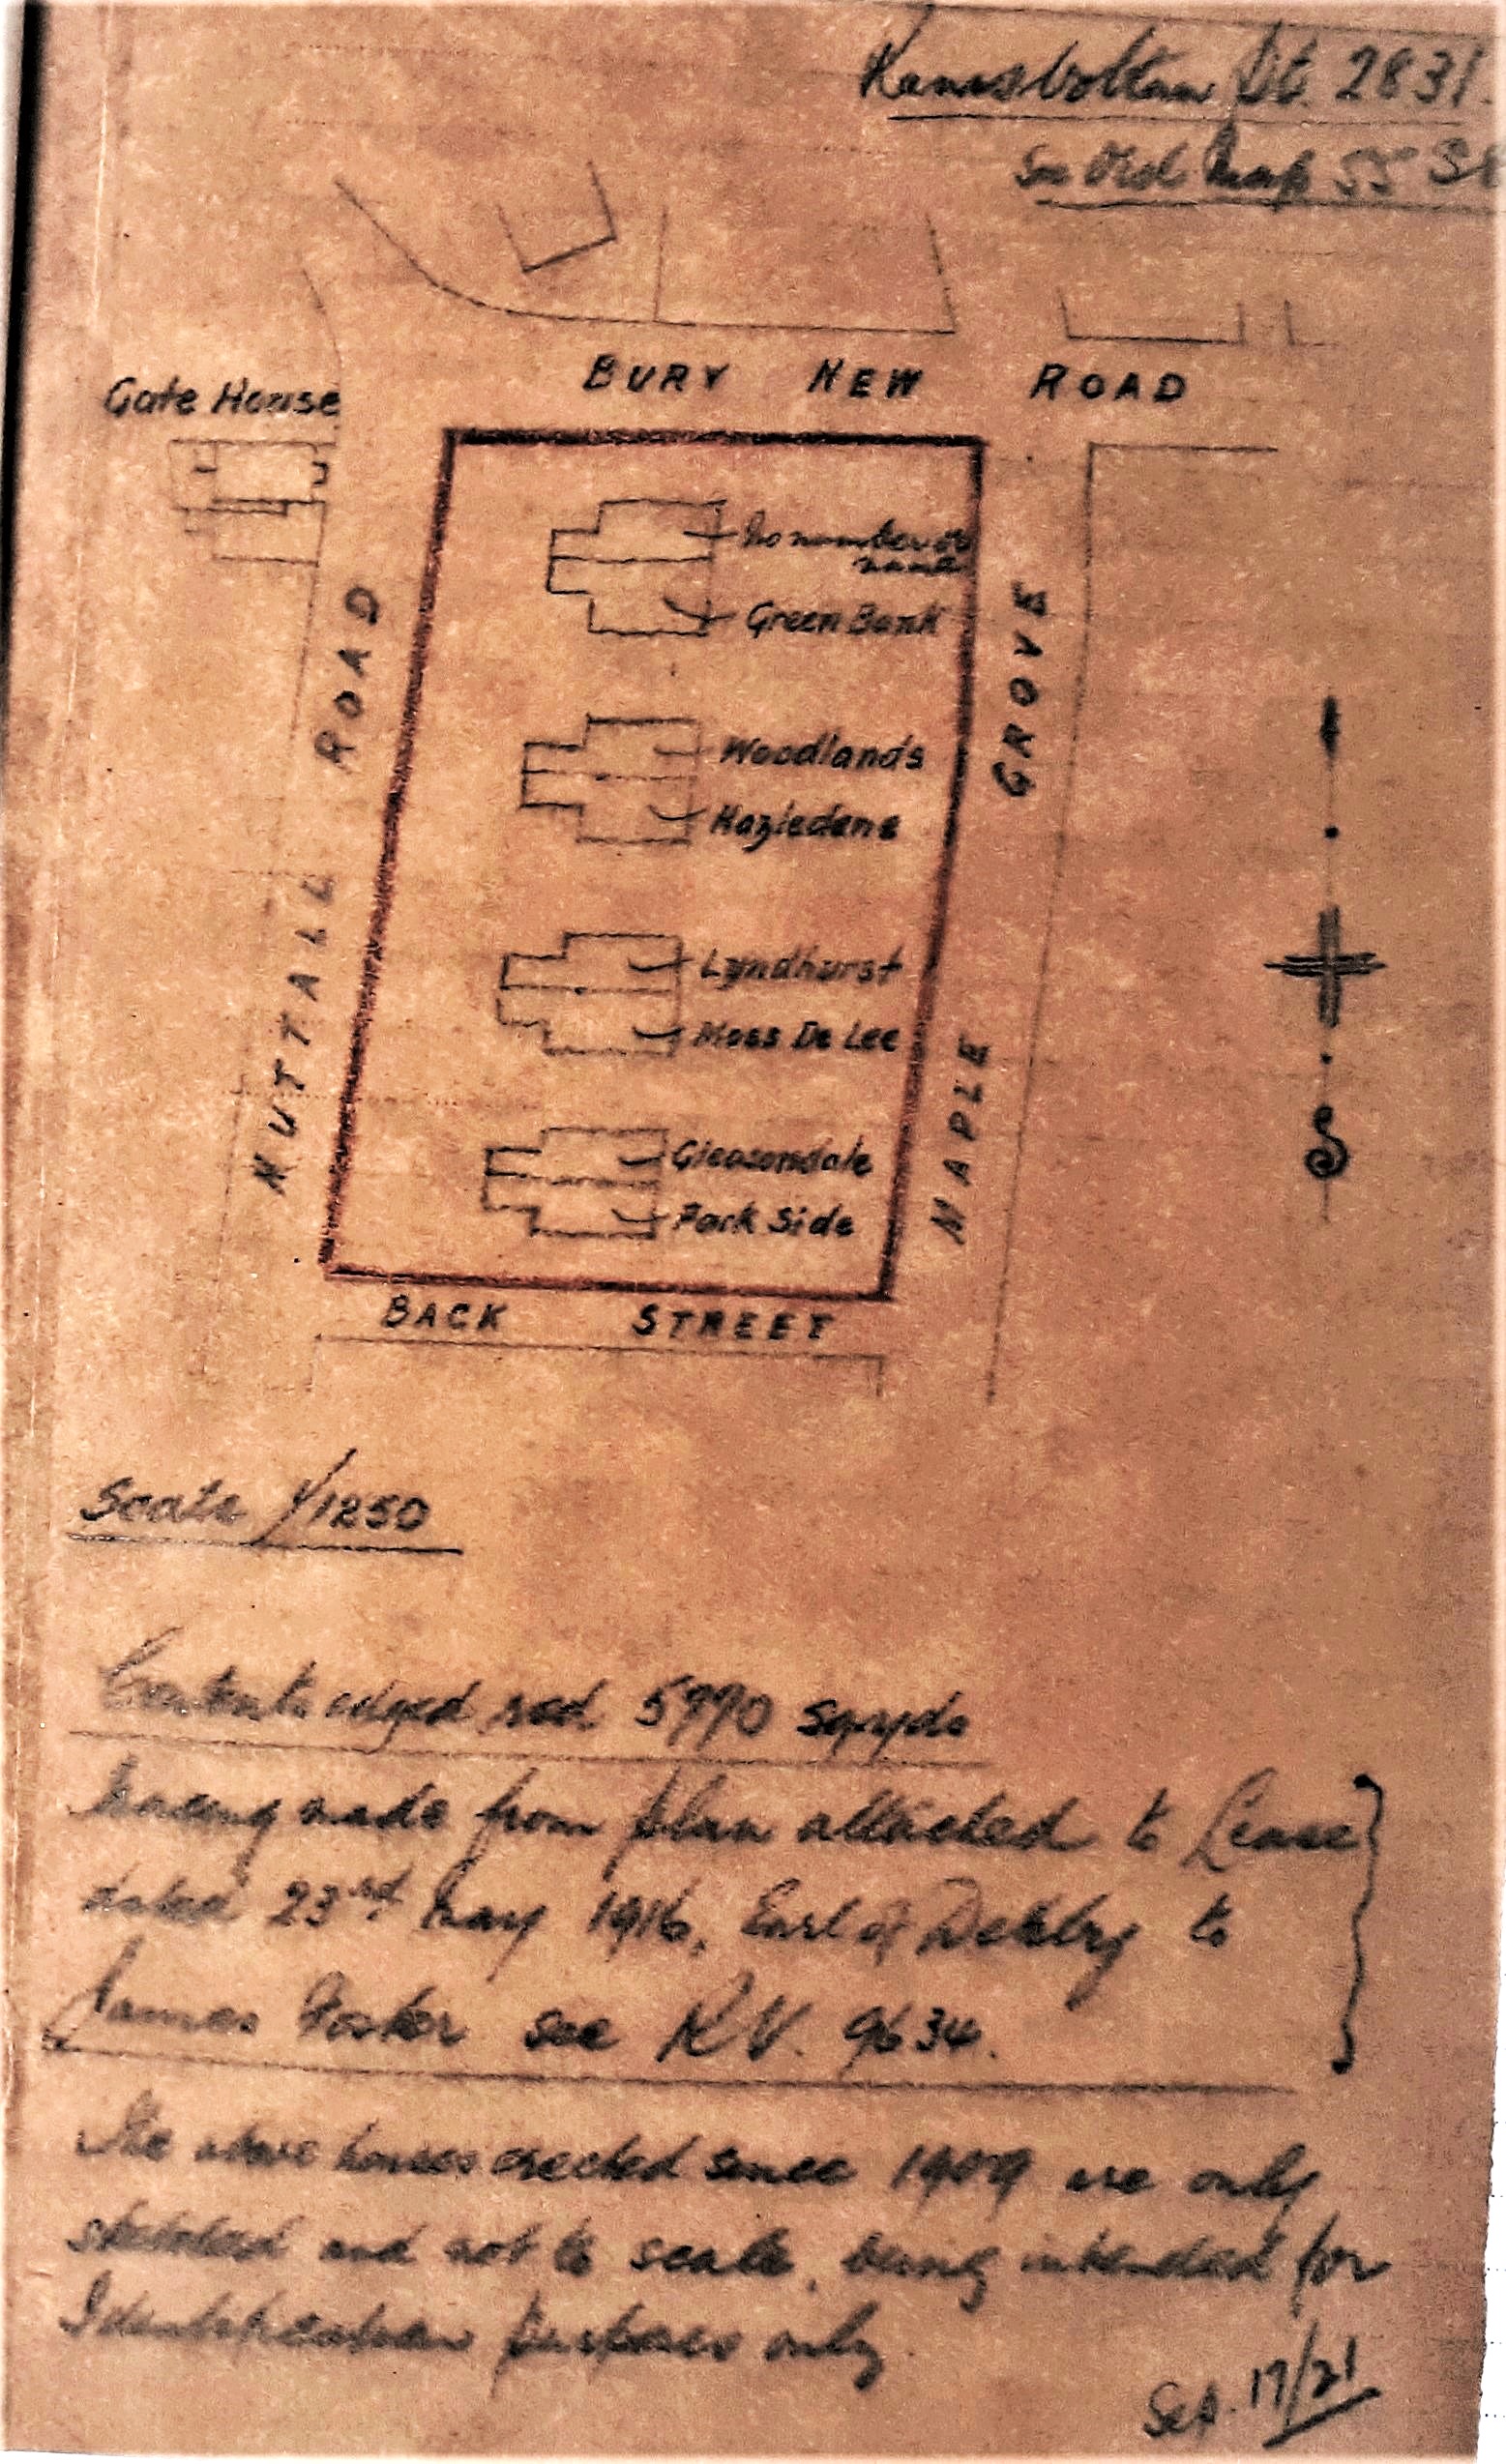 Ramsbottom Dt. 2831.
See Old Map 55
BURY NEW ROAD
Gate House
No number or
name
Green Bank
NUTTALL ROAD
MAPLE GROVE
Woodlands
Hazledene
Lyndhurst
Moss De Lee
S
Gleasondale
Park Side
BACK STREET
Scale 1/1250
Contents edged red 5990 sq yds
Tracing made from plan attached to Lease
dated 23rd May 1916, Earl of Derby to
James Foster see R.V. 9634.
The above houses erected since 1909 are only
sketched and not to scale, being intended for
Identification purposes only.
Sep. 17/21